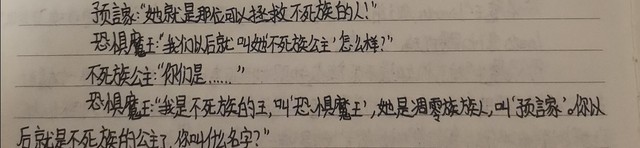 预言家:“她就是那位可以拯救不死族的人!”
恐惧魔王:“我们以后就叫她‘不死族公主’怎么样?”
不死族公主:“你们是……”
恐惧魔王:“我是不死族的王,叫‘恐惧魔王’,她是凋零族族人,叫‘预言家’。你以
后就是不死族的公主了,你叫什么名字?”